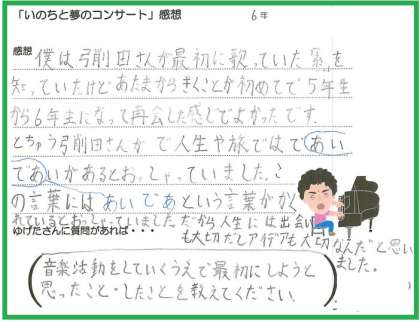 「いのちと夢のコンサート」感想　6年
感想 僕は弓削田さんが最初に歌っていた「翁」を
知っていたけどあたまからきくことが初めてで5年生
から6年生になって再会した感じでよかったです。
とちゅう弓削田さんがで人生や旅ではであい
であいがあるとおっしゃっていました。こ
の言葉にはあいであという言葉がかく
れているとおっしゃっていました。だから人生には出会い
ゆげたさんに質問があれば・・・
も大切だしアイデアも大切なんだと思い
ました。
音楽活動をしていくうえで最初にしようと
思ったこと・したことを教えてください